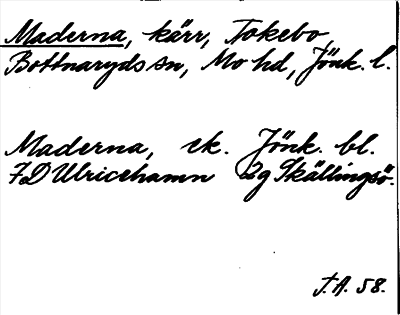 Maderna, kärr, Tokebo,
Bottnaryds sn, Mo hd, Jönk. l.
Maderna, ek. Jönk. bl.
7D Ulricehamn 2g Skällingsö.
J.A. 58.